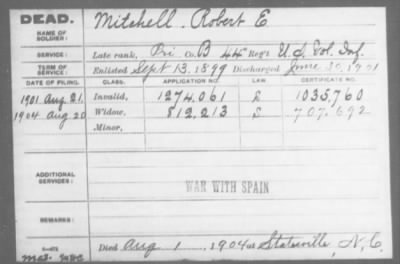 DEAD.
NAME OF SOLDIER: Mitchell. Robert E
SERVICE: Late rank, Pri Co. B 44 Reg't U.S. Vol. Inf.
TERM OF SERVICE: Enlisted Sept 13, 1899 Discharged June 30, 1901
DATE OF FILING. CLASS. APPLICATION NO. LAW CERTIFICATE NO.
1901 Aug. 21, Invalid, 1274.061 1035,760
1904 Aug 20 Widow, 812,213 707,692
Minor,
ADDITIONAL SERVICES:
WAR WITH SPAIN
REMARKS:
Died Aug 1 1904 at Statesville, N.C.